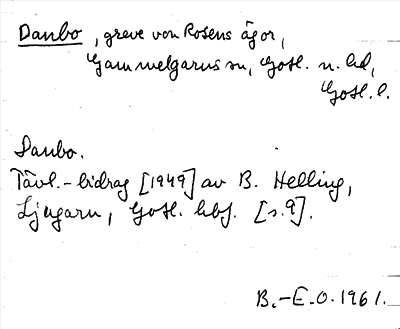 Daubo, greve von Rosens ägor,
Gammelgarns sn, Gotl. n. hd,
Gotl. l.
Daubo.
Tävl.-bidrag [1949] av B. Helling,
Ljugarn, Gotl. hbf. [s.9].
B.-E.O. 1961.